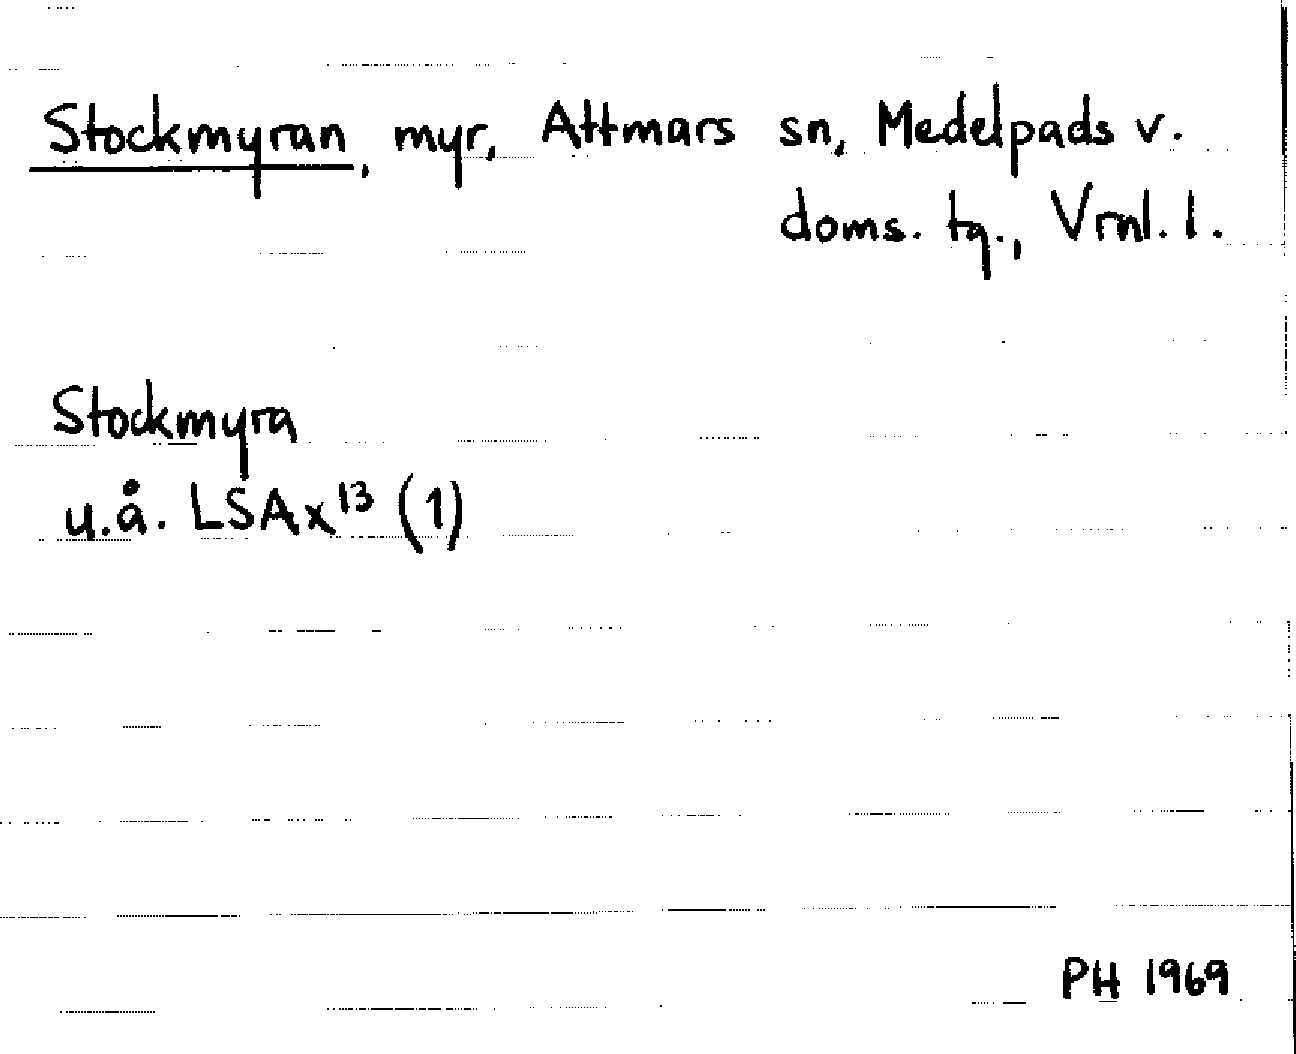 Stockmyran, myr, Attmars sn, Medelpads v.
doms. tg., Vrnl. l.
Stockmyra
u.å. LSA x¹³ (1)
PH 1969